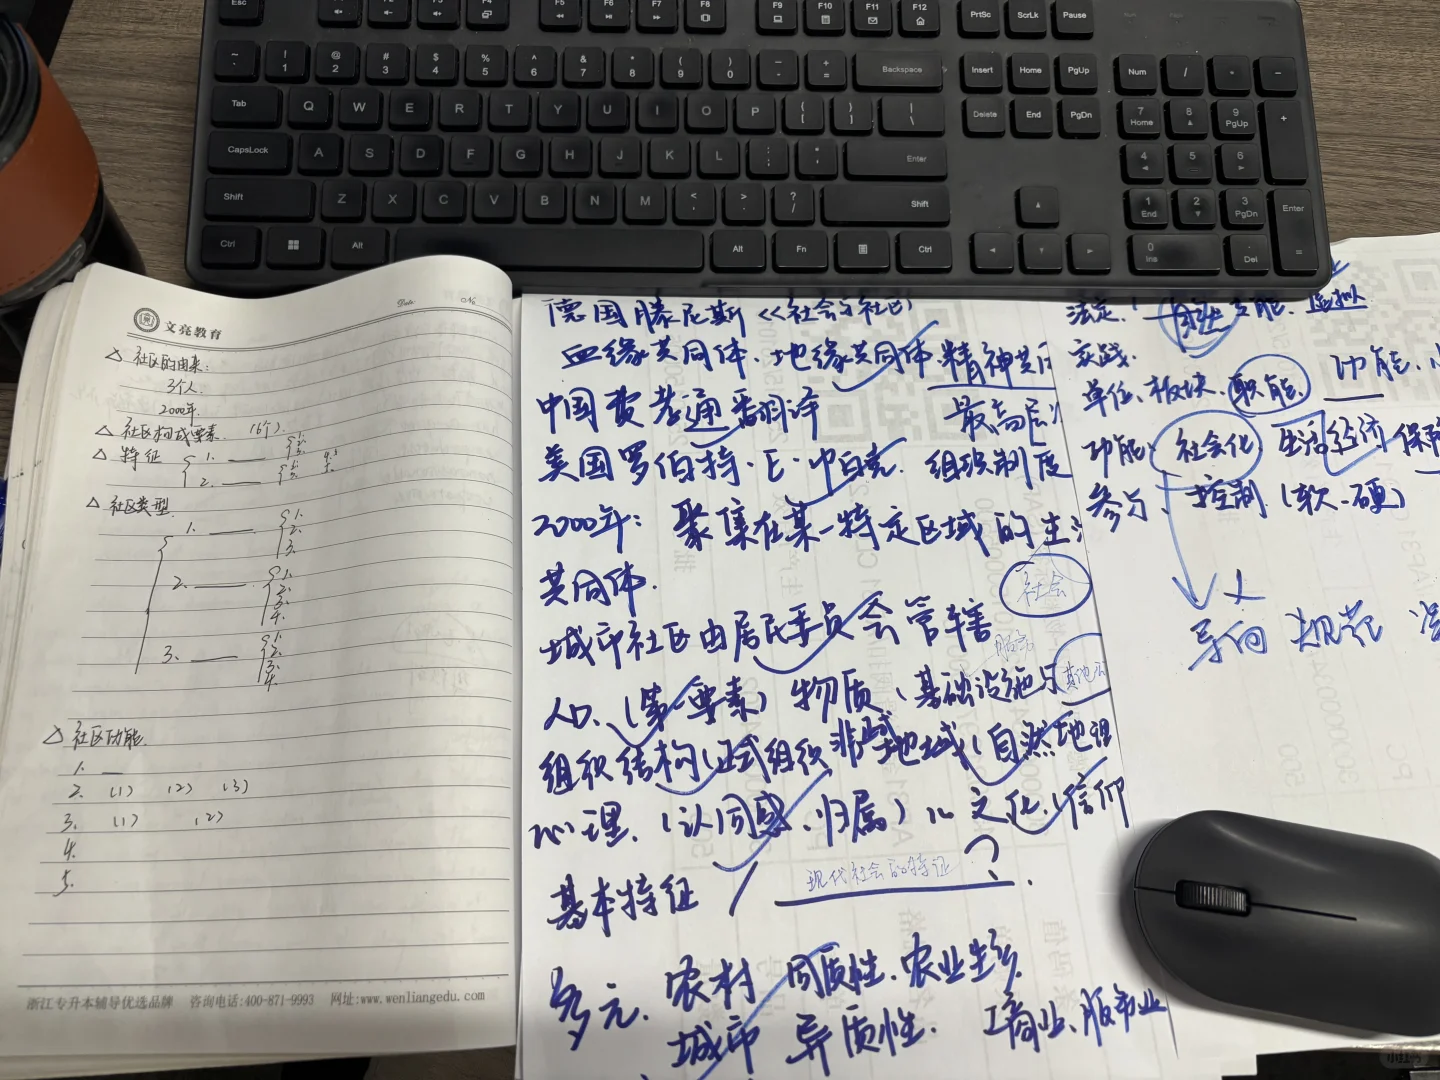 Esc F1 F2 F3 F4 F5 F6 F7 F8 F9 F10 F11 F12 PrtSc ScrLk Pause
~ ` ! 1 @ 2 # 3 $ 4 % 5 ^ 6 & 7 * 8 ( 9 ) 0 - + = Backspace Insert Home PgUp Num / * -
Tab Q W E R T Y U I O P { [ } ] | \ Delete End PgDn 7 Home 8 9 PgUp +
CapsLock A S D F G H J K L : ; " ' Enter 4 5 6
Shift Z X C V B N M < , > . ? / Shift 1 End 2 3 PgDn Enter
Ctrl Alt Alt Fn Ctrl 0 Ins . Del =
Date No.
文亮教育
△ 社区的由来:
3个人
2000年.
△ 社区构成要素 (6个)
△ 特征 1. 1. 2. 3.
2.
△ 社区类型
1. 1. 2. 3.
2. 1. 2. 3. 4.
3. 1. 2. 3. 4.
△ 社区功能
1.
2. (1) (2) (3)
3. (1) (2)
4.
5.
浙江专升本辅导优选品牌 咨询电话:400-871-9993 网址:www.wenliangedu.com
德国滕尼斯《社会与社区》
血缘共同体、地缘共同体、精神共同
中国费孝通翻译 最高层次
美国罗伯特·E·帕克. 组织制度
2000年: 聚集在某一特定区域的生活
共同体.
社会
城市社区由居民委员会管辖
服务
人口、(第一要素) 物质、(基础设施与
组织结构(正式组织 非 地域(自然地理
心理、(认同感、归属) 文化、(信仰
基本特征 现代社会的特征 ?
多元. 农村 同质性、农业生产
城市 异质性. 工商业、服务业
法定、 功能、虚拟
实践.
单位、板块、职能、 功能、
功能: 社会化 生活经济 保障
参与、控制(软-硬)
导向 规范